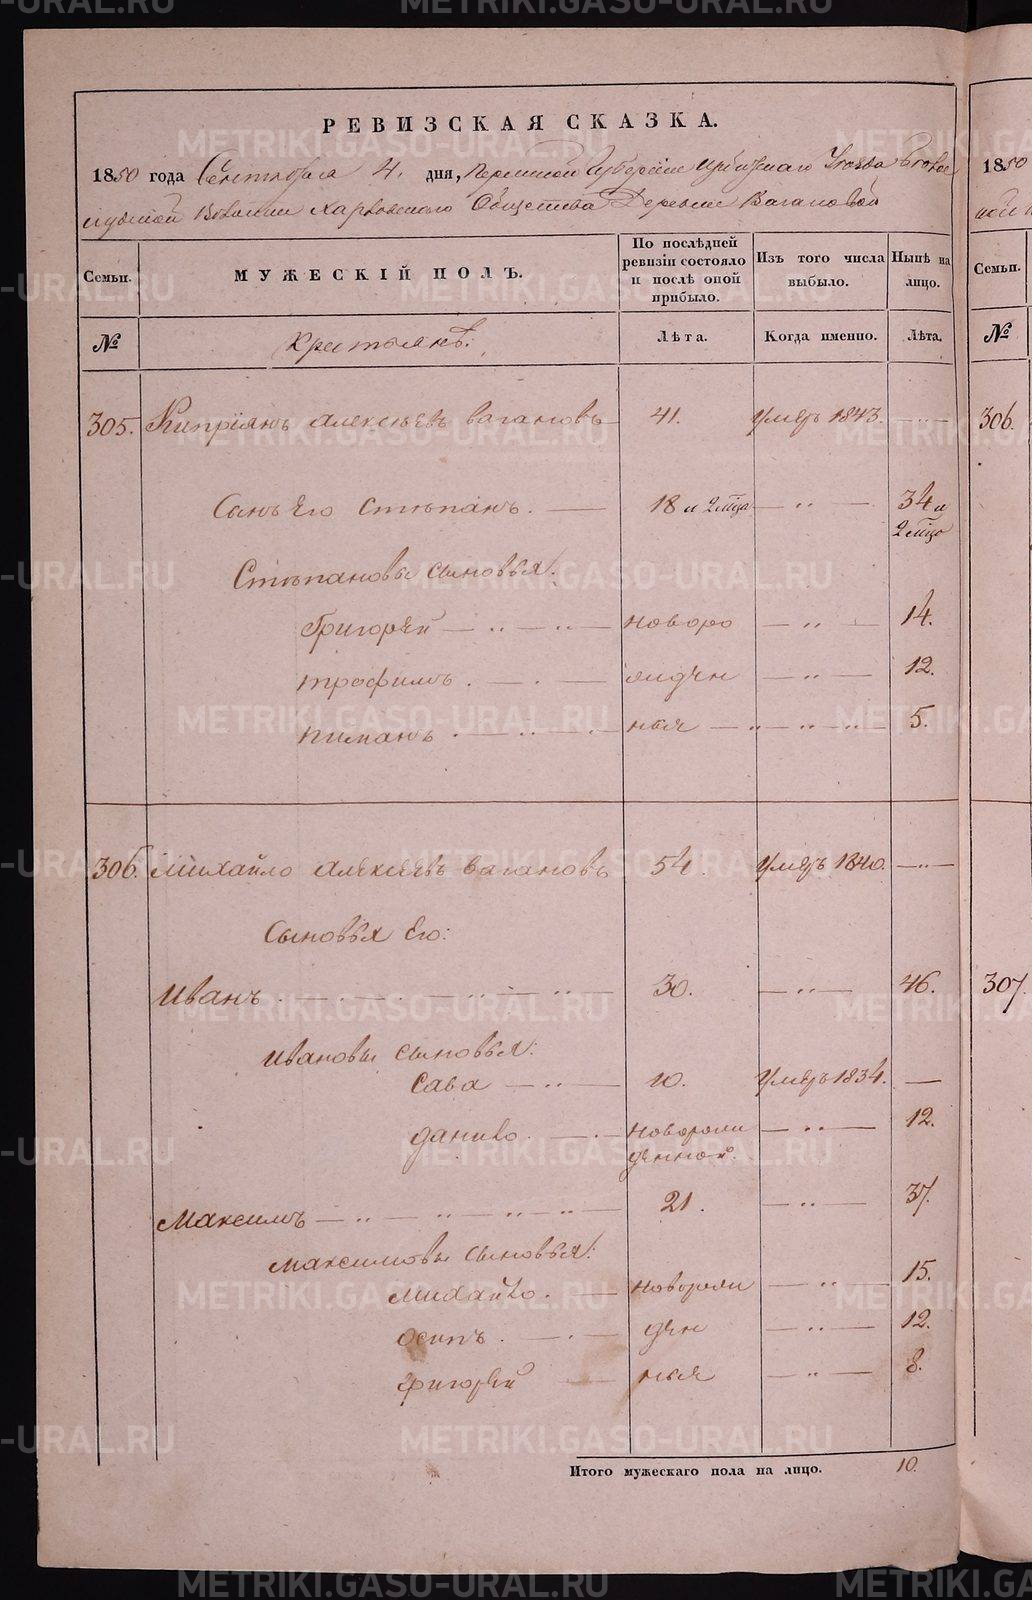 РЕВИЗСКАЯ СКАЗКА.
1850 года Сентября 4. дня, Пермской Губернии Ирбитскаго Уезда
Волости Харловскаго Общества Деревни Вагановой
Семьи. МУЖЕСКІЙ ПОЛЪ. По последней ревизіи состояло и послѣ оной прибыло. Изъ того числа выбыло. Нынѣ на лицо.
№ Крестьянъ: Лѣта. Когда именно. Лѣта.
305. Кипріянъ Алексѣевъ Вагановъ 41. Умеръ 1843. — „ —
Сынъ Его Степанъ. — 18 и 2 мца — „ — 34 и 2 мца
Степановы сыновья:
Григорей — „ — „ — новоро — „ — 14.
трофимъ . — . — жден — „ — 12.
пиманъ ныя — „ „ „ 5.
306. Михайло Алексѣевъ Вагановъ 54. Умеръ 1840. — „ —
Сыновья Его:
Иванъ 30. — „ — 46.
Ивановы сыновья:
Сава — „ — 10. Умеръ 1834. —
данило. — новорожденной. — „ — 12.
Максимъ — „ — „ — „ — „ — 21. — „ — 37.
Максимовы сыновья:
Михайло. — новорож — „ 15.
осипъ . — . — ден — „ — 12.
григорей — ныя — „ — 8.
Итого мужескаго пола на лицо. 10.
1850
Семьи.
№
306.
307.
METRIKI.GASO-URAL.RU